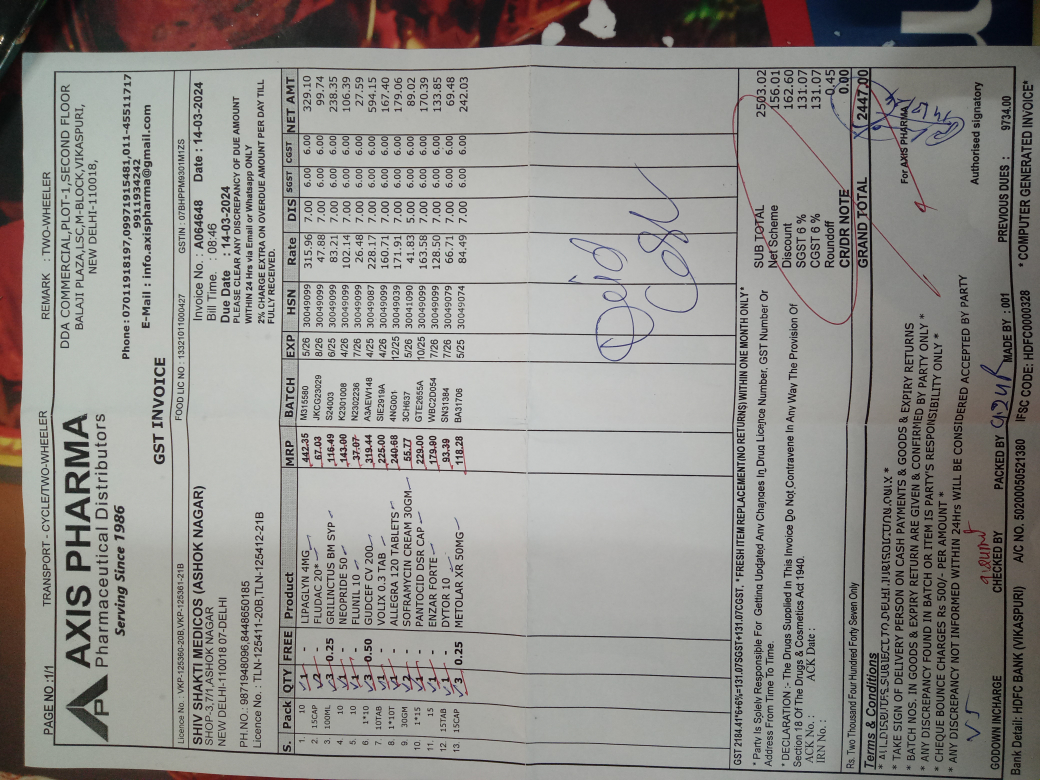 PAGE NO :1/1 TRANSPORT - CYCLE/TWO-WHEELER REMARK : TWO-WHEELER
AXIS PHARMA
Pharmaceutical Distributors
Serving Since 1986
DDA COMMERCIAL,PLOT-1,SECOND FLOOR
BALAJI PLAZA,LSC,M-BLOCK,VIKASPURI,
NEW DELHI-110018,
Phone:07011918197,09971915481,011-45511717
9911934242
E-Mail : info.axispharma@gmail.com
GST INVOICE
Licence No. : VKP-125360-20B,VKP-125361-21B FOOD LIC NO : 13321011000427 GSTIN : 07BHPPM9301M1ZS
SHIV SHAKTI MEDICOS (ASHOK NAGAR)
SHOP-3,7/1,ASHOK NAGAR
NEW DELHI-110018 07-DELHI
PH.NO.: 9871948096,8448650185
Licence No : TLN-125411-20B,TLN-125412-21B
Invoice No. : A064648 Date : 14-03-2024
Bill Time. : 08:46
Due Date : 14-03-2024
PLEASE CLEAR ANY DISCREPANCY OF DUE AMOUNT
WITHIN 24 Hrs via Email or Whatsapp ONLY
2% CHARGE EXTRA ON OVERDUE AMOUNT PER DAY TILL
FULLY RECEIVED.
S. Pack QTY FREE Product MRP BATCH EXP HSN Rate DIS SGST CGST NET AMT
1. 10 1 - LIPAGLYN 4MG 442.35 M315580 5/26 30049099 315.96 7.00 6.00 6.00 329.10
2. 15CAP 2 - FLUDAC 20* 67.03 JKCG23029 8/26 30049099 47.88 7.00 6.00 6.00 99.74
3. 100ML 3 0.25 GRILINCTUS BM SYP 116.49 S24003 6/25 30049099 83.21 7.00 6.00 6.00 238.35
4. 10 1 - NEOPRIDE 50 143.00 K2301008 4/26 30049099 102.14 7.00 6.00 6.00 106.39
5. 10 1 - FUNIL 10 37.07 N2302236 7/26 30049099 26.48 7.00 6.00 6.00 27.59
6. 1*10 3 0.50 GUDCEF CV 200 319.44 A3AEW148 4/25 30049087 228.17 7.00 6.00 6.00 594.15
7. 10TAB 1 - VOLIX 0.3 TAB 225.00 SIE2919A 4/26 30049099 160.71 7.00 6.00 6.00 167.40
8. 1*10T 1 - ALLEGRA 120 TABLETS 240.68 4NG001 12/25 30049039 171.91 7.00 6.00 6.00 179.06
9. 30GM 2 - SOFRAMYCIN CREAM 30GM 55.77 3CH637 5/26 30041090 41.83 5.00 6.00 6.00 89.02
10. 1*15 1 - PANTOCID DSR CAP 229.00 GTE2655A 10/25 30049099 163.58 7.00 6.00 6.00 170.39
11. 15 1 - ENZAR FORTE 179.90 WBC2D054 7/26 30049099 128.50 7.00 6.00 6.00 133.85
12. 15TAB 1 - DYTOR 10 93.39 SN31384 7/26 30049079 66.71 7.00 6.00 6.00 69.48
13. 15CAP 3 0.25 METOLAR XR 50MG 118.28 BA31706 5/25 30049074 84.49 7.00 6.00 6.00 242.03
GST 2184.41*6+6%=131.07SGST+131.07CGST. *FRESH ITEM REPLACEMENT(NO RETURNS) WITHIN ONE MONTH ONLY*
* Party Is Splely Responsible For Getting Updated Any Changes In Drug Licence Number, GST Number Or
Address From Time To Time.
* DECLARATION :- The Drugs Supplied In This Invoice Do Not Contravene In Any Way The Provision Of
Section 18 Of The Drugs & Cosmetics Act 1940.
ACK No : ACK Date :
IRN No. :
SUB TOTAL 2503.02
Net Scheme 156.01
Discount 162.60
SGST 6 % 131.07
CGST 6 % 131.07
Roundoff 0.45
CR/DR NOTE 0.00
GRAND TOTAL 2447.00
Rs. Two Thousand Four Hundred Forty Seven Only
Terms & Conditions
* ALL DISPUTES SUBJECT TO DELHI JURISDICTION ONLY *
* TAKE SIGN OF DELIVERY PERSON ON CASH PAYMENTS & GOODS & EXPIRY RETURNS
* BATCH NOS. IN GOODS & EXPIRY RETURN ARE GIVEN & CONFIRMED BY PARTY ONLY *
* ANY DISCREPANCY FOUND IN BATCH OR ITEM IS PARTY'S RESPONSIBILITY ONLY *
* CHEQUE BOUNCE CHARGES Rs 500/- PER AMOUNT *
* ANY DISCREPANCY NOT INFORMED WITHIN 24Hrs WILL BE CONSIDERED ACCEPTED BY PARTY
For AXIS PHARMA
Authorised signatory
GODOWN INCHARGE CHECKED BY PACKED BY MADE BY : 001 PREVIOUS DUES : 9734.00
Bank Detail: HDFC BANK (VIKASPURI) A/C NO. 50200050521380 IFSC CODE: HDFC0000328 * COMPUTER GENERATED INVOICE*